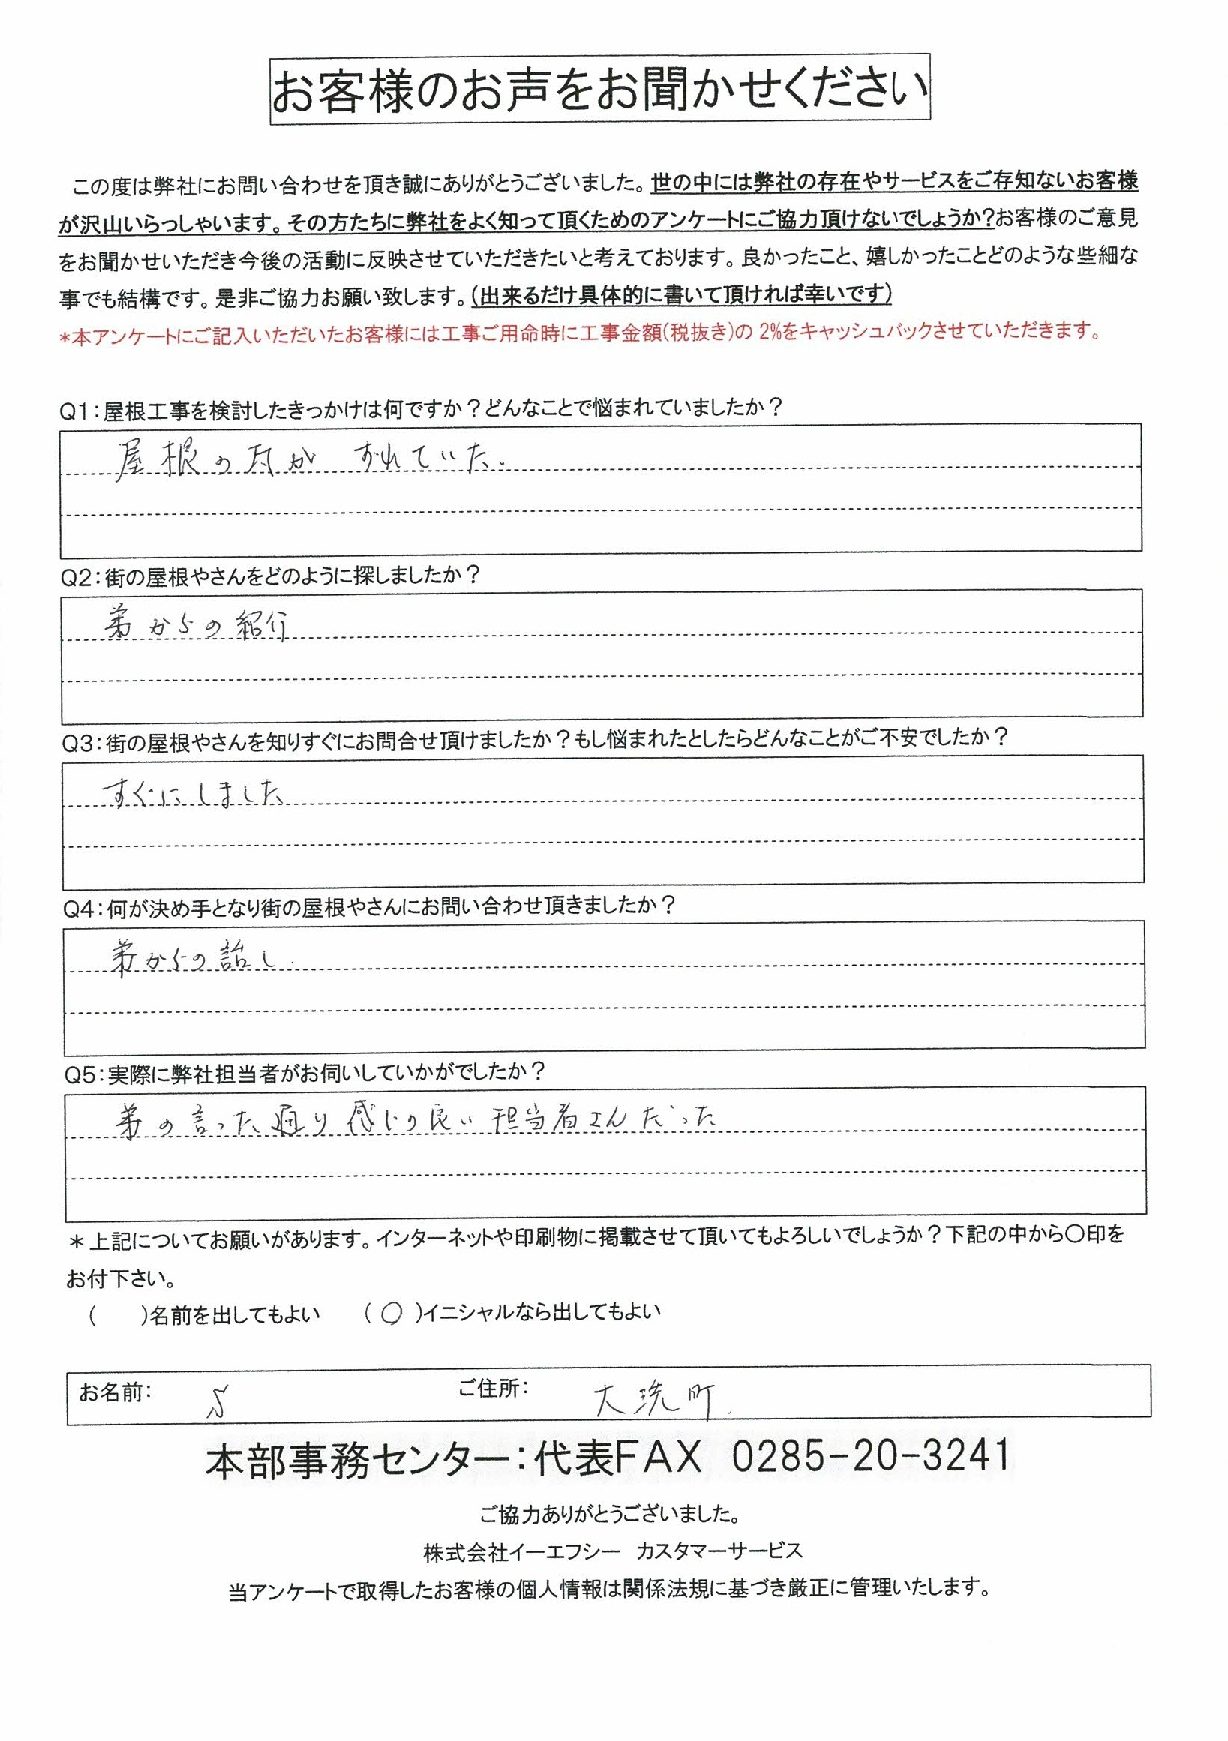 お客様のお声をお聞かせください
この度は弊社にお問い合わせを頂き誠にありがとうございました。世の中には弊社の存在やサービスをご存知ないお客様
が沢山いらっしゃいます。その方たちに弊社をよく知って頂くためのアンケートにご協力頂けないでしょうか?お客様のご意見
をお聞かせいただき今後の活動に反映させていただきたいと考えております。良かったこと、嬉しかったことどのような些細な
事でも結構です。是非ご協力お願い致します。(出来るだけ具体的に書いて頂ければ幸いです)
*本アンケートにご記入いただいたお客様には工事ご用命時に工事金額(税抜き)の 2%をキャッシュバックさせていただきます。
Q1:屋根工事を検討したきっかけは何ですか?どんなことで悩まれていましたか?
屋根の瓦が ずれていた.
Q2:街の屋根やさんをどのように探しましたか?
弟からの紹介
Q3:街の屋根やさんを知りすぐにお問合せ頂けましたか?もし悩まれたとしたらどんなことがご不安でしたか?
すぐにしました
Q4:何が決め手となり街の屋根やさんにお問い合わせ頂きましたか?
弟からの話し.
Q5:実際に弊社担当者がお伺いしていかがでしたか?
弟の言った通り 感じの良い 担当者さんだった
*上記についてお願いがあります。インターネットや印刷物に掲載させて頂いてもよろしいでしょうか?下記の中から〇印を
お付下さい。
( )名前を出してもよい (〇)イニシャルなら出してもよい
お名前: S ご住所: 大洗町.
本部事務センター:代表FAX 0285-20-3241
ご協力ありがとうございました。
株式会社イーエフシー カスタマーサービス
当アンケートで取得したお客様の個人情報は関係法規に基づき厳正に管理いたします。